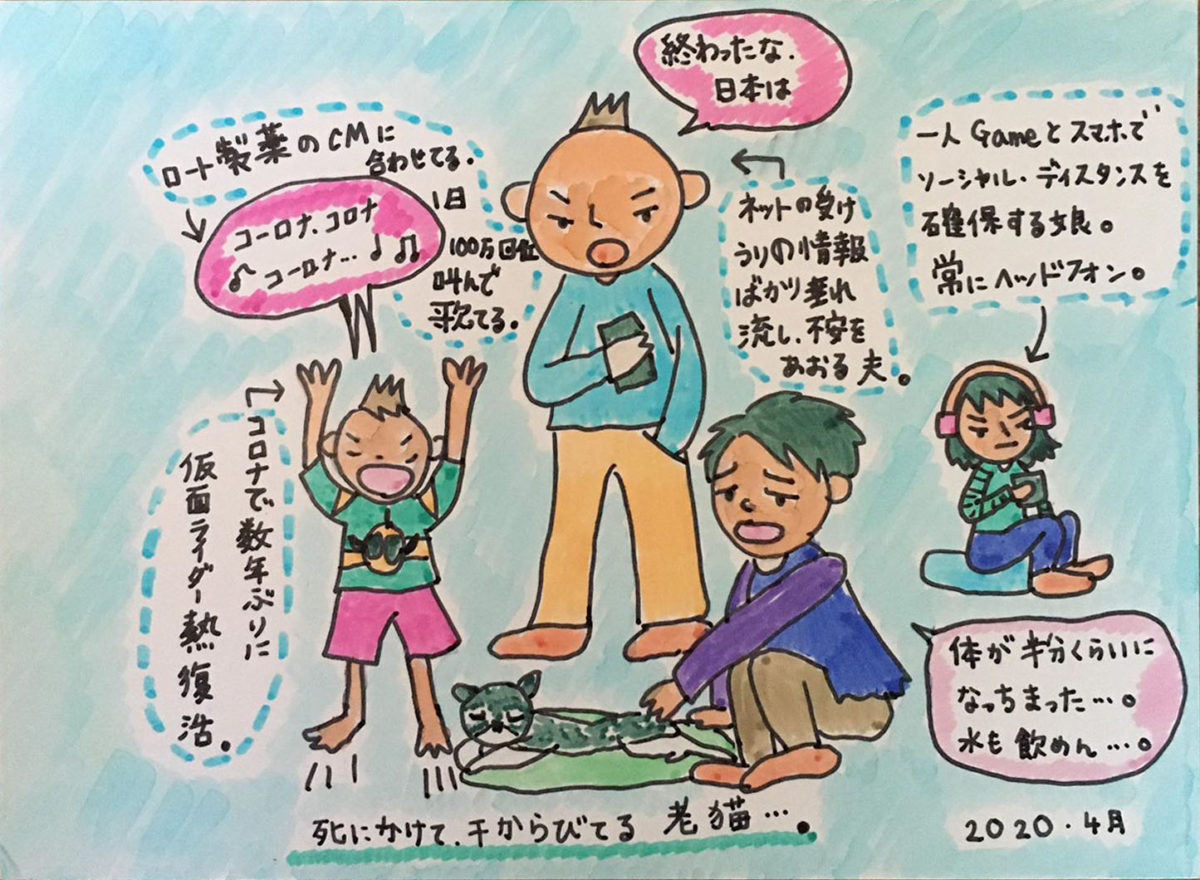 終わったな.
日本は
ロート製薬のCMに
合わせてる.
1日
100万回位
叫んで
歌てる.
コーロナ.コロナ
コーロナ…
ネットの受け
うりの情報
ばかり垂れ
流し、不安を
あおる夫。
一人Gameとスマホで
ソーシャル・ディスタンスを
確保する娘。
常にヘッドフォン。
コロナで数年ぶりに
仮面ライダー熱復浩。
体が半分くらいに
なっちまった…。
水も飲めん…。
死にかけて、干からびてる 老猫…。
2020.4月